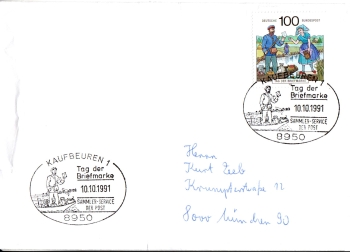 DEUTSCHE BUNDESPOST
100
TAG DER BRIEFMARKE
KAUFBEUREN 1
Tag der
Briefmarke
10.10.1991
SAMMLER-SERVICE
DER POST
8950
KAUFBEUREN 1
Tag der
Briefmarke
10.10.1991
SAMMLER-SERVICE
DER POST
8950
Herrn
Kurt Zeeb
8000 München 90